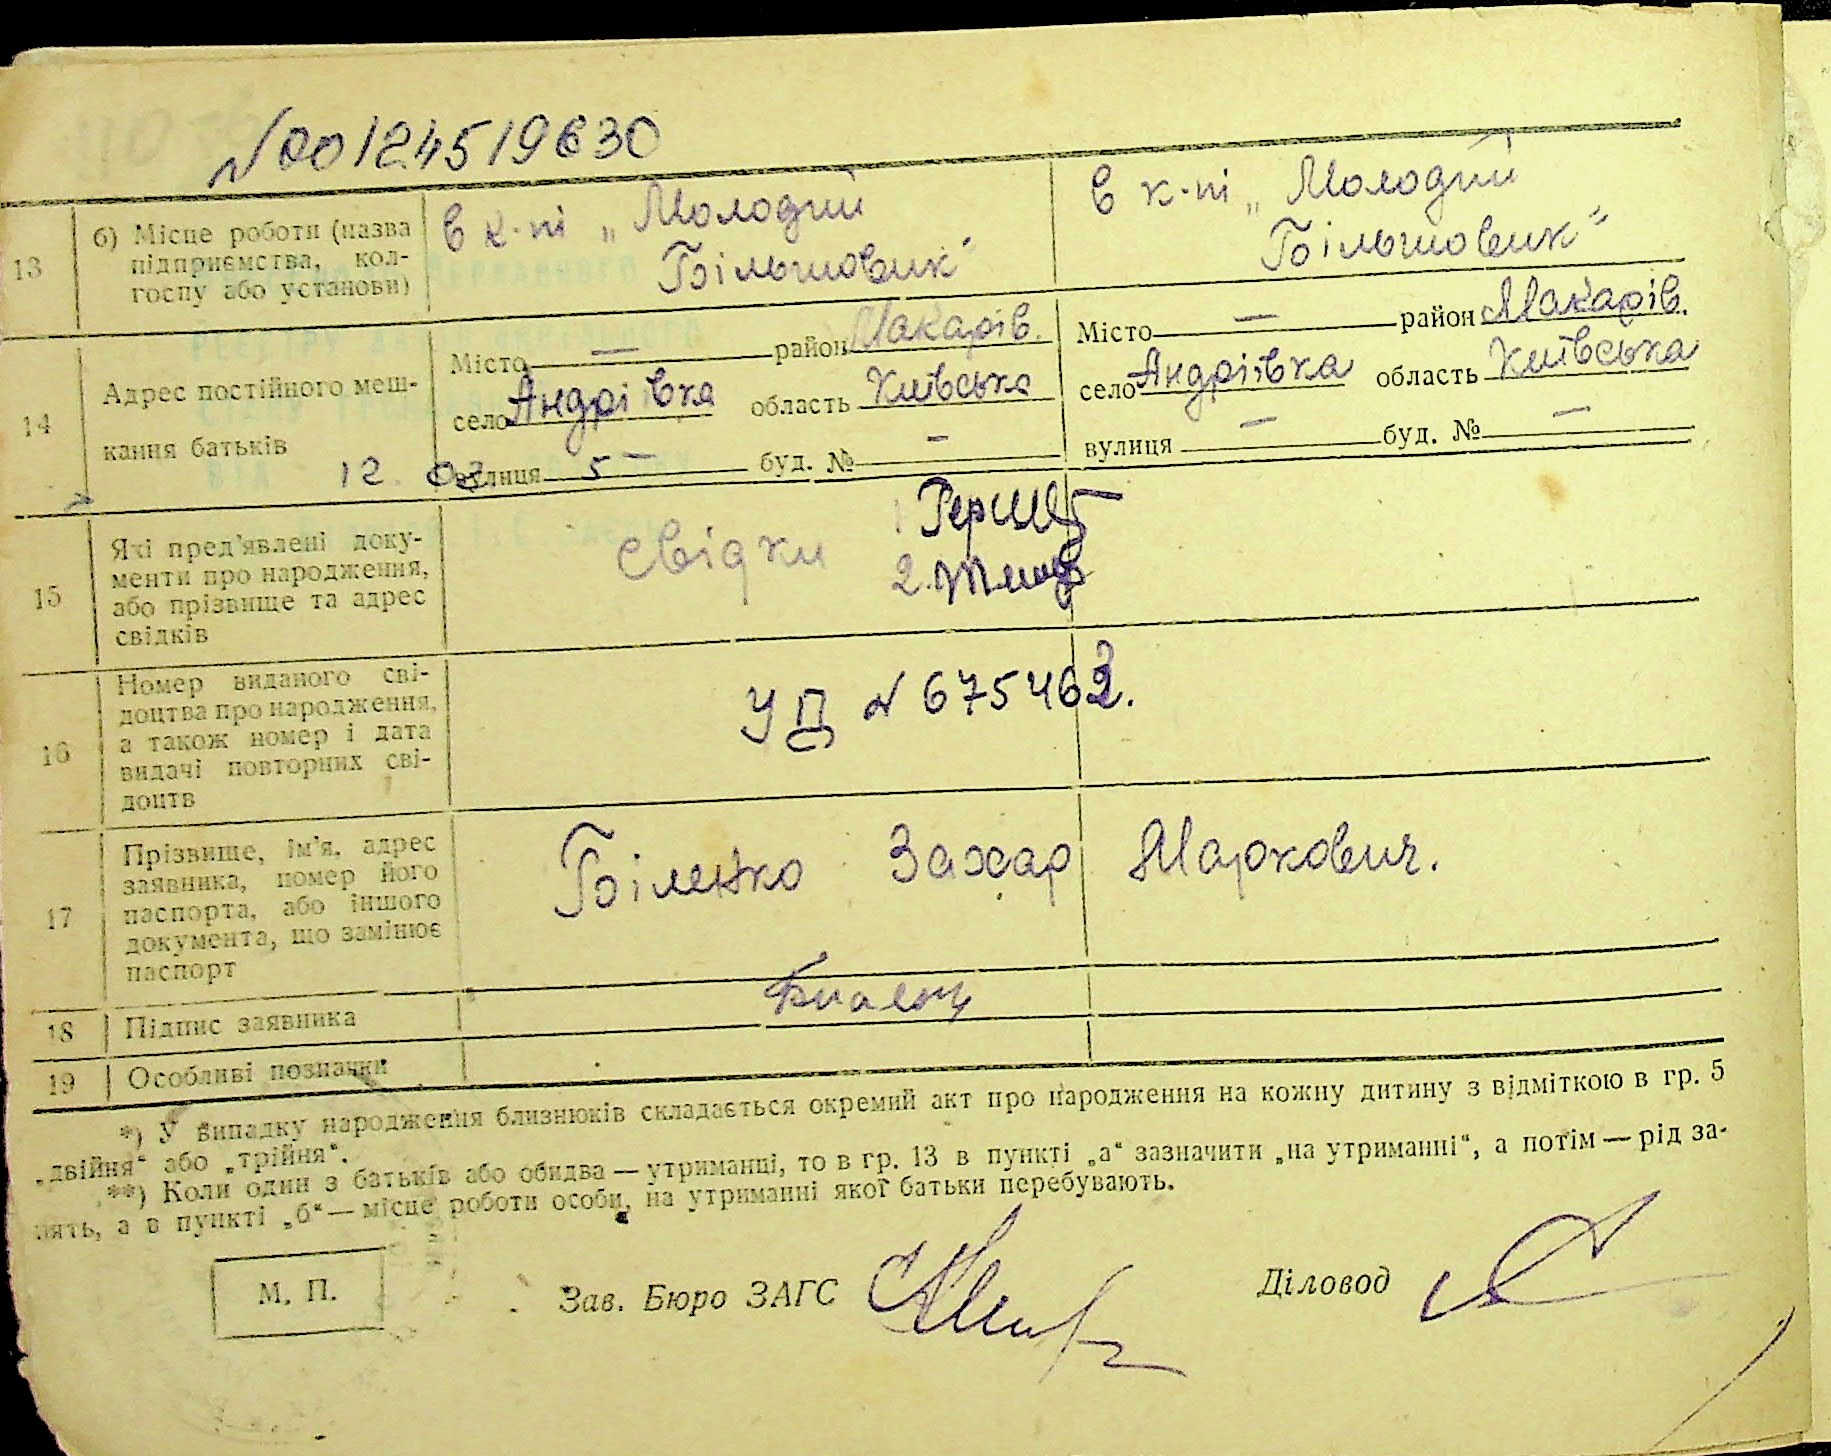 №00124519630
13 б) Місце роботи (назва підприємства, колгоспу або установи)
В к-пі „Молодий Більшовик"
В к-пі „Молодий Більшовик"
14 Адрес постійного мешкання батьків
Місто — район Макарів.
село Андріївка область Київська
вулиця 5 — буд. № —
Місто — район Макарів.
село Андріївка область Київська
вулиця — буд. № —
12. 02
15 Які пред'явлені документи про народження, або прізвище та адрес свідків
свідки 1
2.
16 Номер виданого свідоцтва про народження, а також номер і дата видачі повторних свідоцтв
УД № 675462.
17 Прізвище, ім'я, адрес заявника, номер його паспорта, або іншого документа, що замінює паспорт
Біленко Захар Маркович.
18 Підпис заявника
19 Особливі позначки
*) У випадку народження близнюків складається окремий акт про народження на кожну дитину з відміткою в гр. 5
„двійня" або „трійня".
**) Коли один з батьків або обидва — утриманці, то в гр. 13 в пункті „а" зазначити „на утриманні", а потім — рід за-
нять, а в пункті „б" — місце роботи особи, на утриманні якої батьки перебувають.
М. П.
Зав. Бюро ЗАГС
Діловод